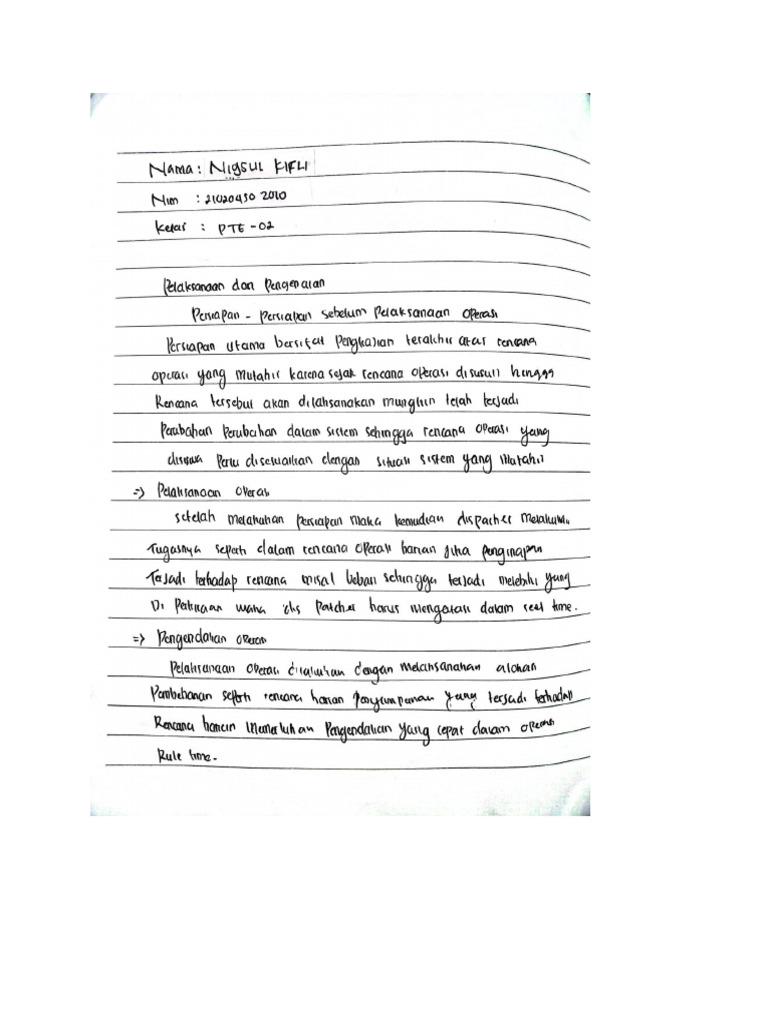 Nama : Nigsul KIFLI
Nim : 2102045O 2010
Kelas : PTE - 02
Pelaksanaan dan Pengendalian
Persiapan - Persiapan sebelum pelaksanaan operasi
Persiapan utama bersifat Pengkajian terakhir atas rencana
operasi yang mutahir karena sejak rencana operasi disusun hingga
Rencana tersebut akan dilaksanakan mungkin telah terjadi
Perubahan Perubahan dalam sistem sehingga rencana operasi yang
disusun Perlu disesuaikan dengan situasi sistem yang Mutahir
=> Pelaksanaan operasi
setelah melakukan persiapan maka kemudian dispatcher melakukan
Tugasnya seperti dalam rencana operasi harian jika
Terjadi terhadap rencana misal beban sehingga terjadi melebihi yang
Di Perkiraan maka harus mengatasi dalam real time.
=> Pengendalian operasi
Pelaksanaan operasi dilakukan dengan melaksanakan alokasi
Pembebanan seperti rencana harian Penyimpanan yang terjadi terhadap
Rencana harian memerlukan Pengendalian yang cepat dalam operasi
Rule time.